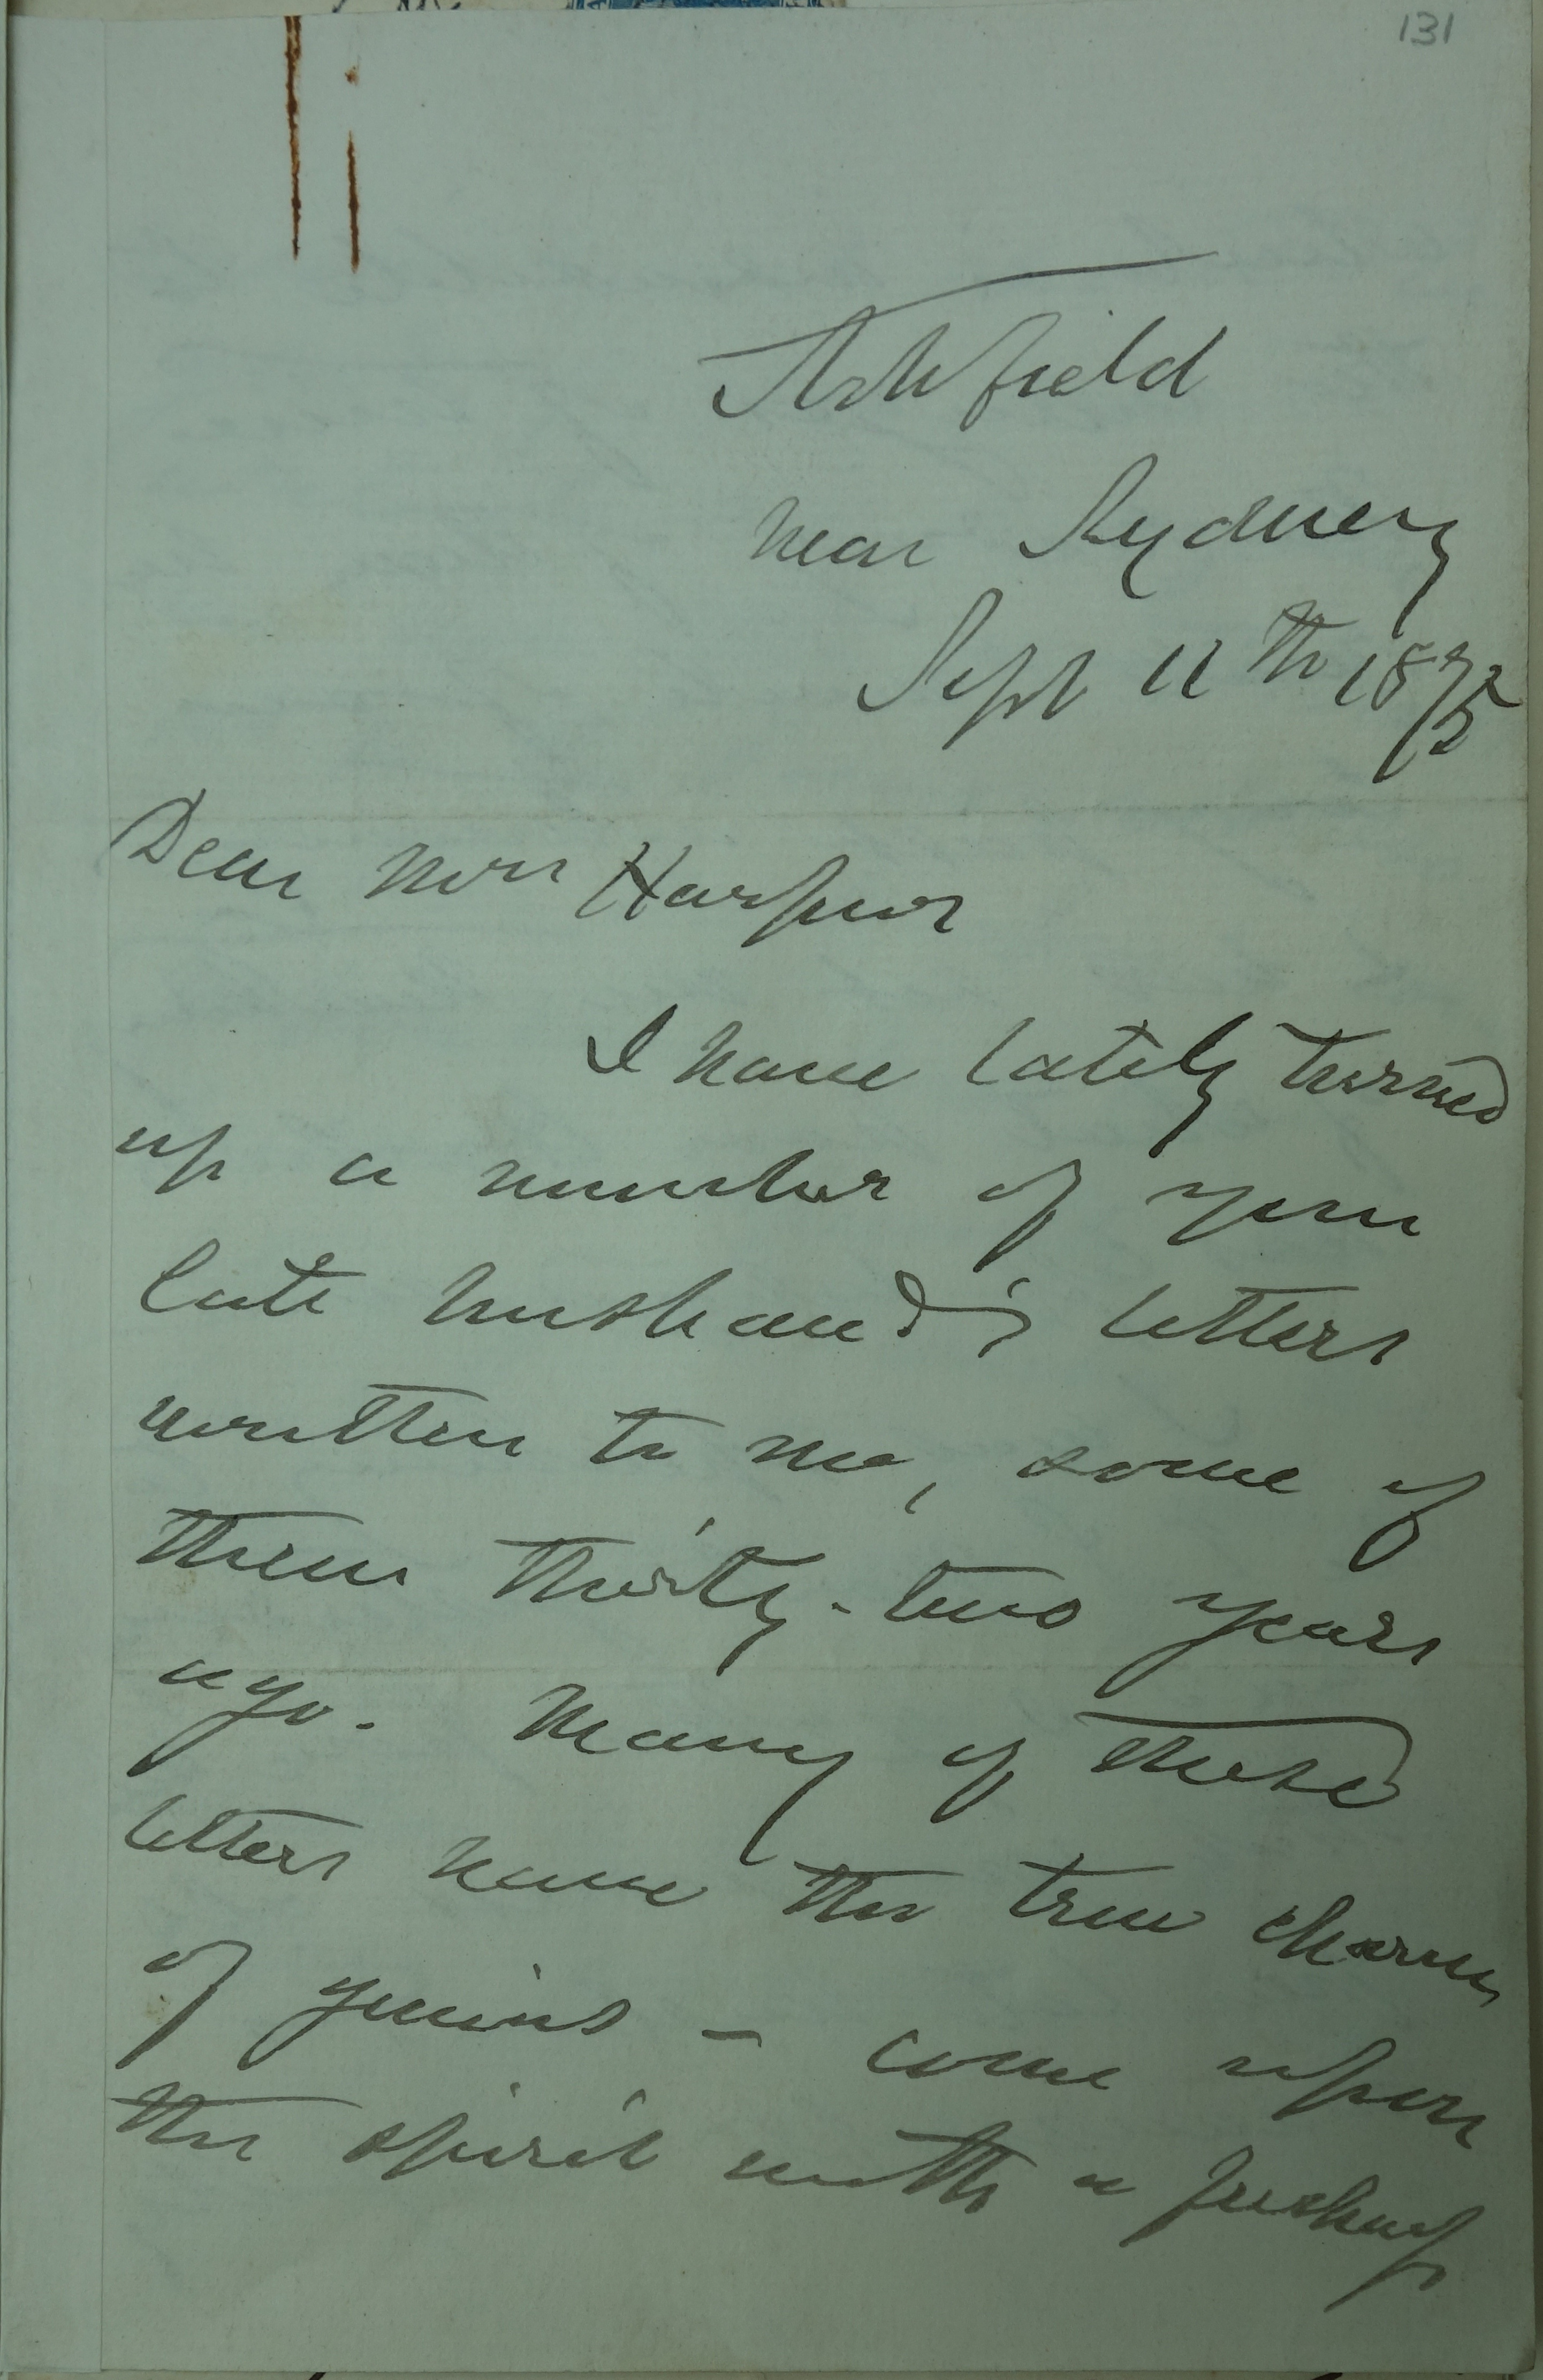 131
Ashfield
near Sydney
Sept 11th 1875
Dear Mrs Harpur
I have lately turned
up a number of your
late husband's letters
written to me, some of
them thirty-two years
ago. Many of these
letters have the true charm
of genius - come upon
the spirit with a freshness